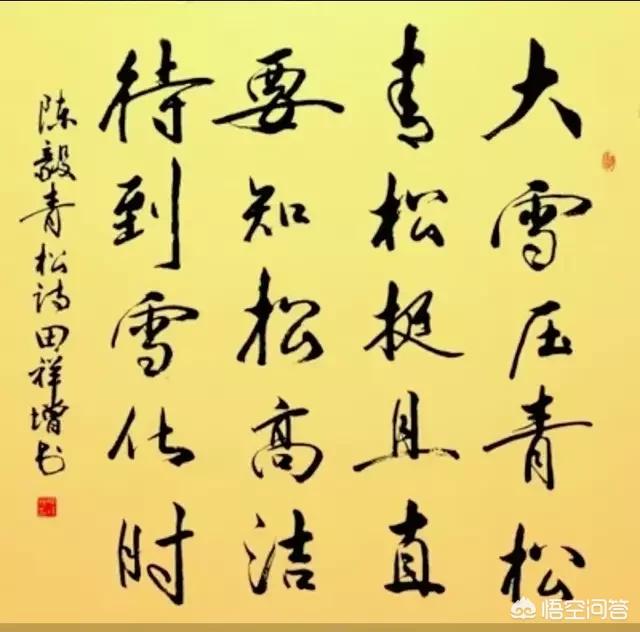 大雪压青松
青松挺且直
要知松高洁
待到雪化时
陈毅青松诗田祥增书
悟空问答